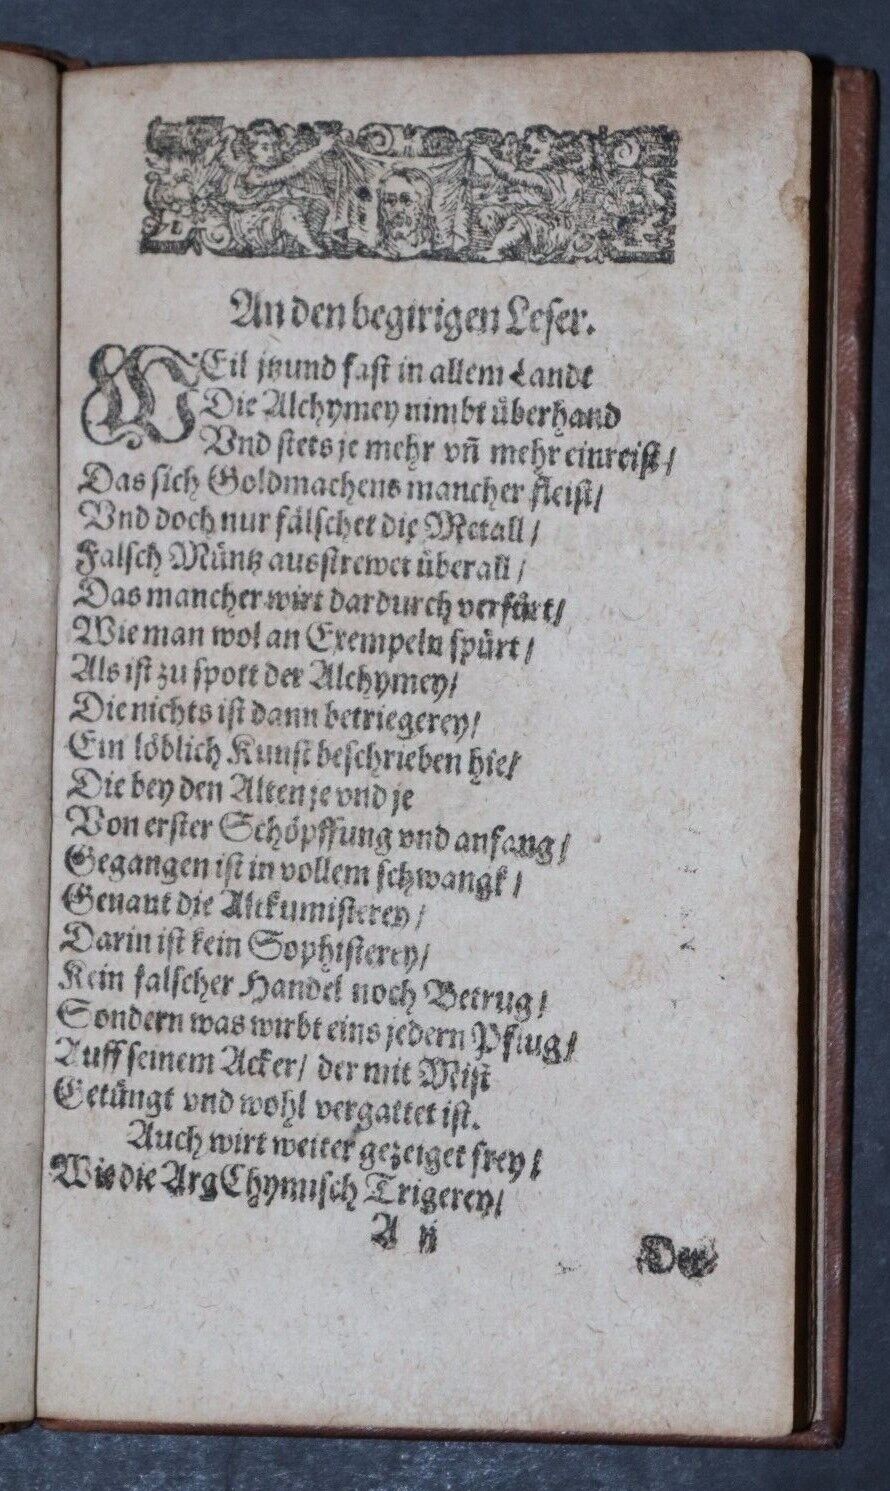 An den begirigen Leser.
WEil jtzund fast in allem Landt
Die Alchymey nimbt überhand
Vnd stets je mehr vñ mehr einreist/
Das sich Goldmachens mancher fleist/
Vnd doch nur fälschet die Metall/
Falsch Müntz ausstrewet überall/
Das mancher wirt dardurch verfürt/
Wie man wol an Exempeln spürt/
Als ist zu spott der Alchymey/
Die nichts ist dann betriegerey/
Ein löblich Kunst beschrieben hie/
Die bey den Alten je vnd je
Von erster Schöpffung vnd anfang/
Gegangen ist in vollem schwangk/
Genant die Altkumisterey/
Darin ist kein Sophisterey/
Kein falscher Handel noch Betrug/
Sondern was wirbt eins jedern Pflug/
Auff seinem Acker/ der mit Mist
Getüngt vnd wohl vergattet ist.
Auch wirt weiter gezeiget frey/
Wie die ArgChymisch Trigerey/
A ij
Der